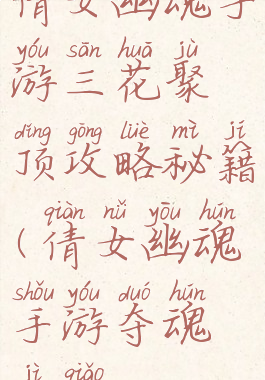 倩女幽魂手
yóu sān huā jù
游三花聚
dǐng gōng lüè mì jí
顶攻略秘籍
qiàn nǚ yōu hún
(倩女幽魂
shǒu yóu duó hún
手游夺魂
jì qiǎo